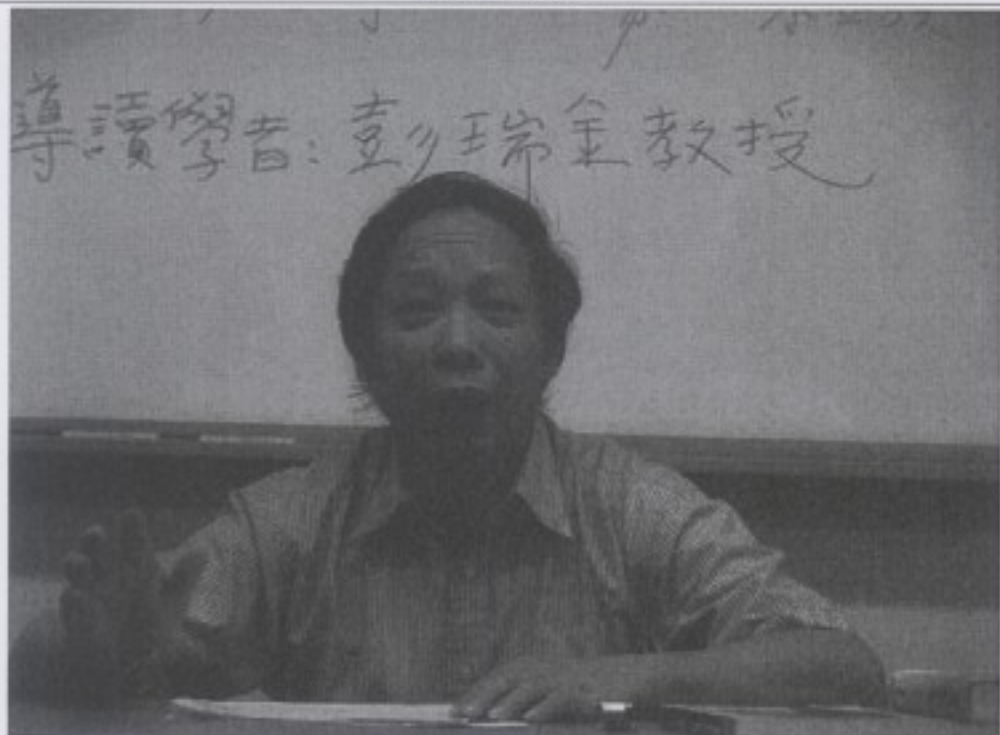 導讀學者：彭瑞金教授